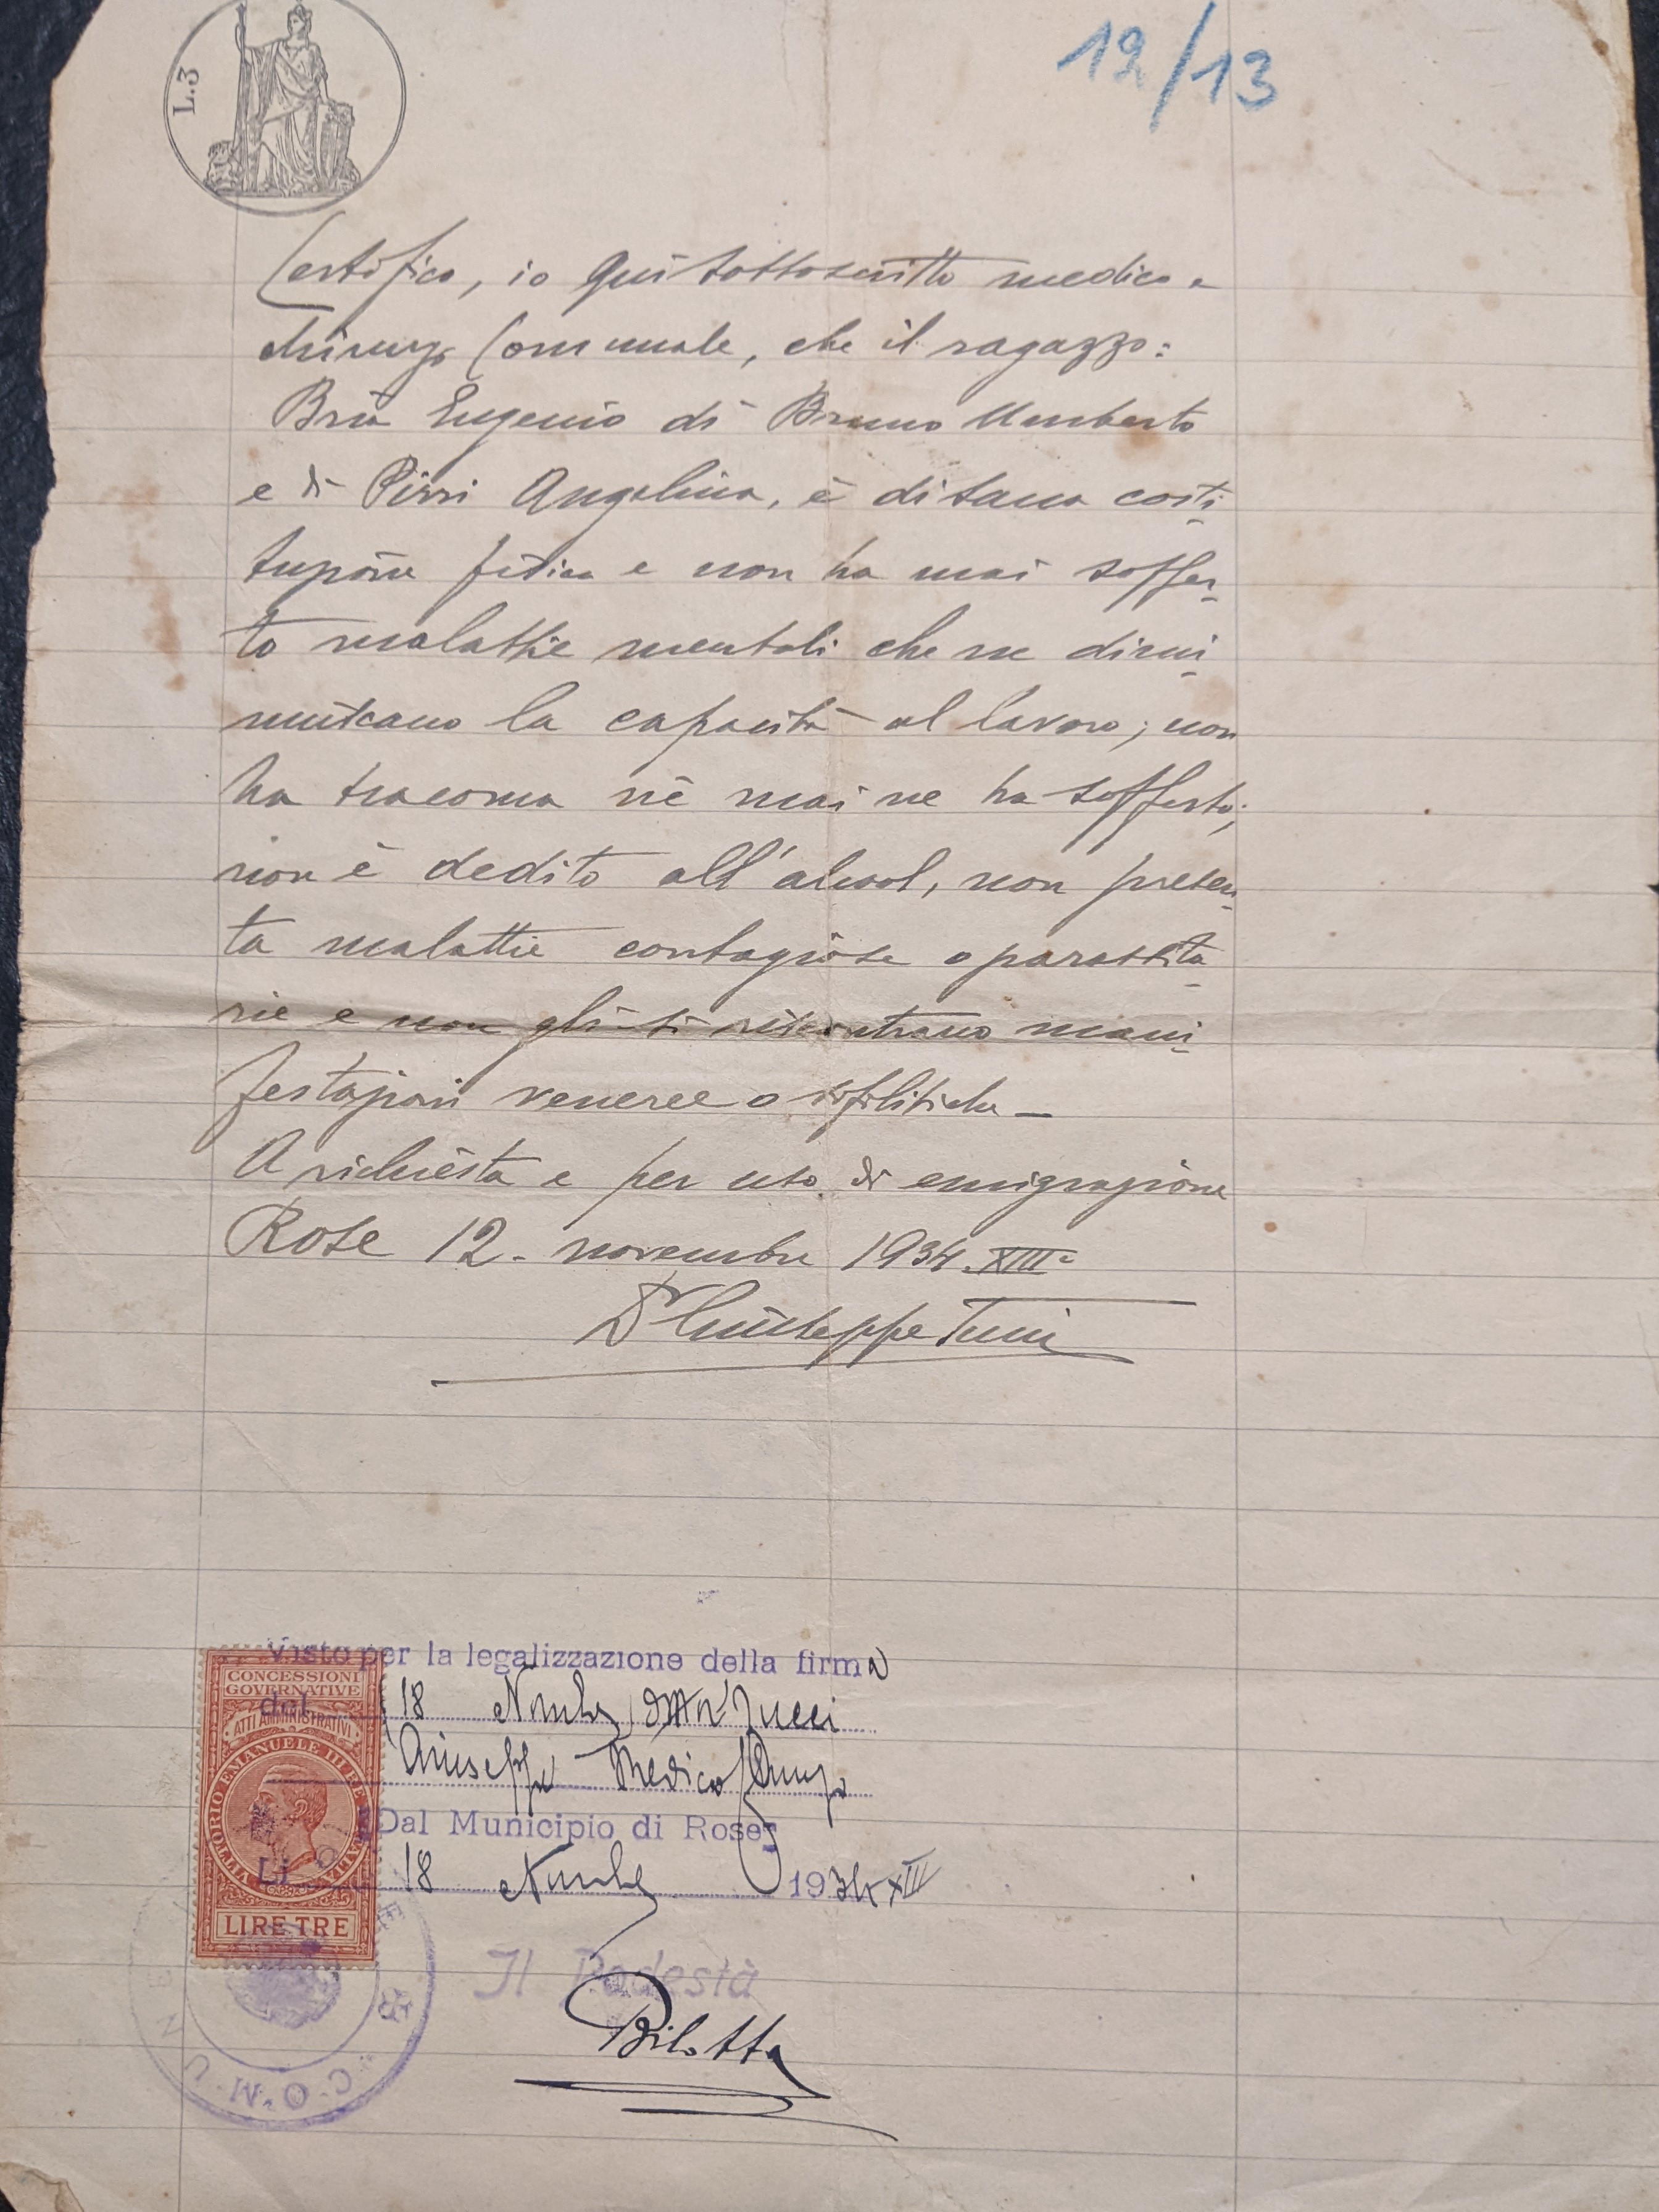 L.3
12/13
Certifico, io qui sottoscritto medico e
chirurgo Comunale, che il ragazzo:
Bria Eugenio di Bruno Umberto
e di Pirri Angelina, è di sana costi-
tuzione fisica e non ha mai soffer-
to malattie mentali che ne dimi-
nuiscano la capacità al lavoro; non
ha tracoma nè mai ne ha sofferto;
non è dedito all'alcool, non presen-
ta malattie contagiose o parassita-
rie e non gli si riscontrano mani-
festazioni veneree o sifilitiche —
A richiesta e per uso di emigrazione
Rose 12 - novembre 1934. XIII°
Dr Giuseppe Tucci
Visto per la legalizzazione della firma
del 18 Novembre Tucci
Giuseppe Medico Chirurgo
Dal Municipio di Rose
Li 18 Novembre 1934 XIII
Il Podestà
Bilotta
CONCESSIONI
GOVERNATIVE
ATTI AMMINISTRATIVI
VITTORIO EMANUELE III RE D'ITALIA
LIRE TRE
COMUNE